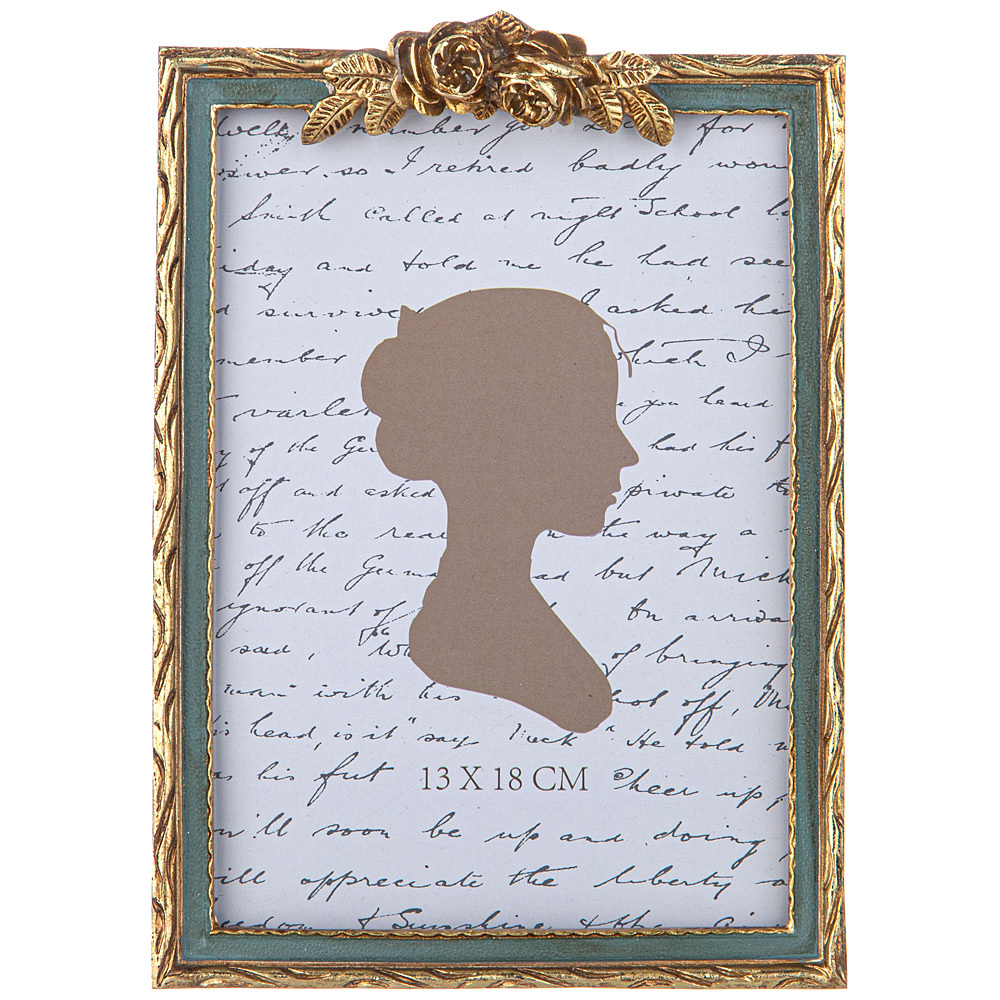 well number for
swer. so I retired badly
Smith called at night School
day and told me he had see
d survive asked he
member which I
varlet you heard
y of the Ge had his f
t off and asked private
to the rea n the way a
off the Germa ad but Mick
ignorant of On arriva
said, W of bringing
man with his hot off, M
s head, is it" says Mick" He told
as his feet Cheer up,
13 X 18 CM
u'll soon be up and doing
ill appreciate the liberty
eedom & Sunshine & the